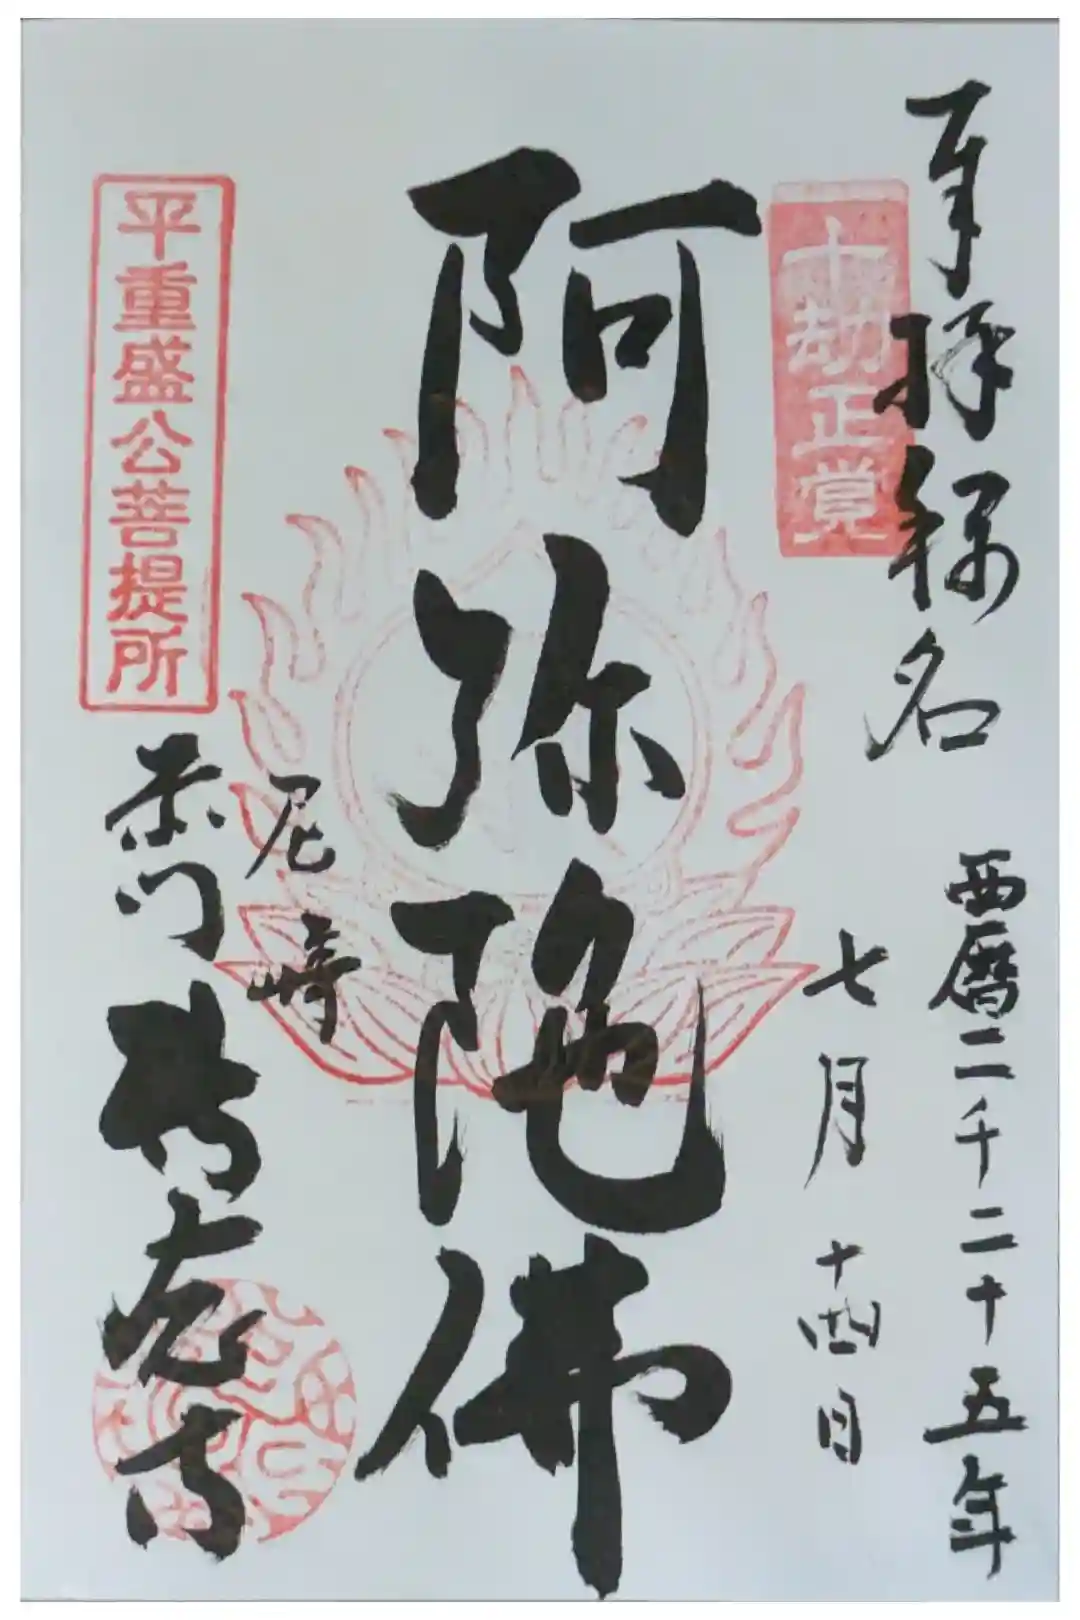 奉拝称名
西暦二千二十五年
七月十四日
十劫正覚
阿弥陀佛
尼崎
平重盛公菩提所
赤門 専念寺